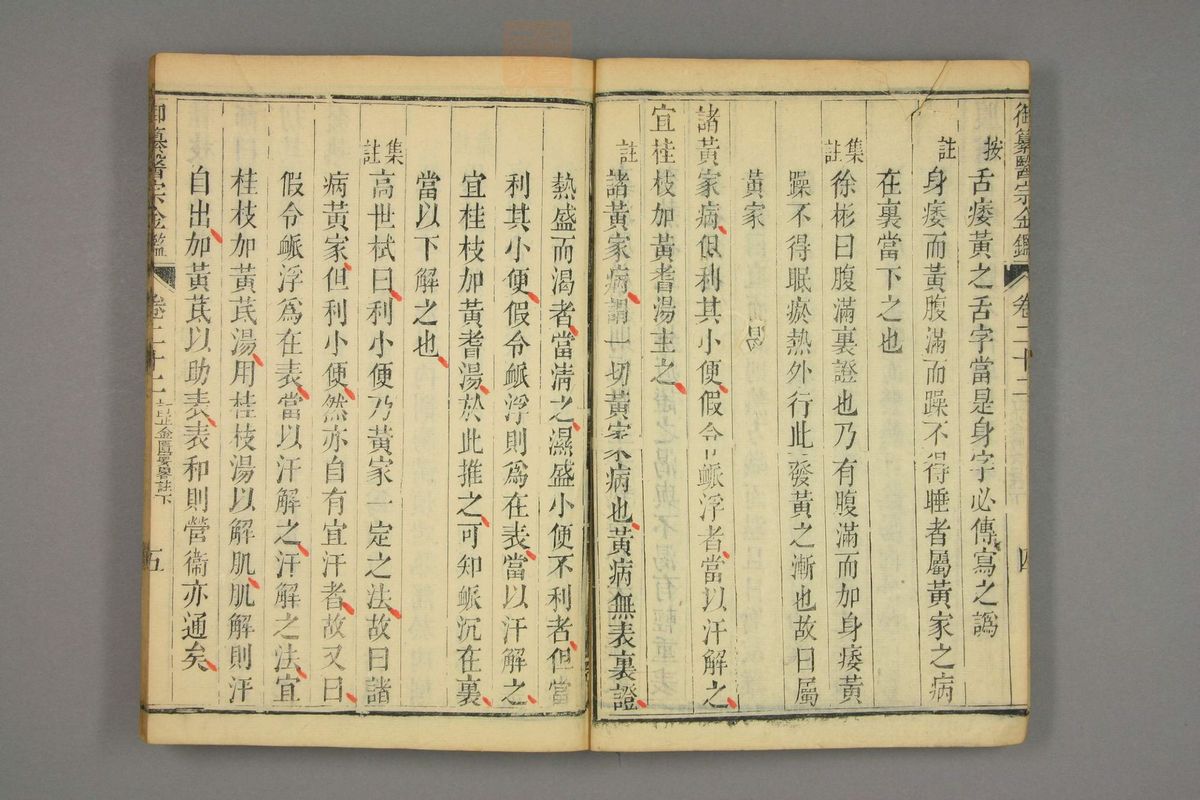 御纂醫宗金鑑 卷二十二 四
按 舌痿黃之舌字當是身字必傳寫之譌
註 身痿而黃腹滿而躁不得睡者屬黃家之病
在裏當下之也
集註 徐彬曰腹滿裏證也乃有腹滿而加身痿黃
躁不得眠瘀熱外行此發黃之漸也故曰屬
黃家
諸黃家病但利其小便假令脈浮者當以汗解之
宜桂枝加黃耆湯主之
註 諸黃家病謂一切黃家病也黃病無表裏證
熱盛而渴者當淸之濕盛小便不利者但當
利其小便假令脈浮則爲在表當以汗解之
宜桂枝加黃耆湯於此推之可知脈沉在裏
當以下解之也
集註 高世栻曰利小便乃黃家一定之法故曰諸
病黃家但利小便然亦自有宜汗者故又曰
假令脈浮爲在表當以汗解之汗解之法宜
桂枝加黃芪湯用桂枝湯以解肌肌解則汗
自出加黃芪以助表表和則營衞亦通矣
御纂醫宗金鑑 卷二十二 訂正金匱要畧註下 五